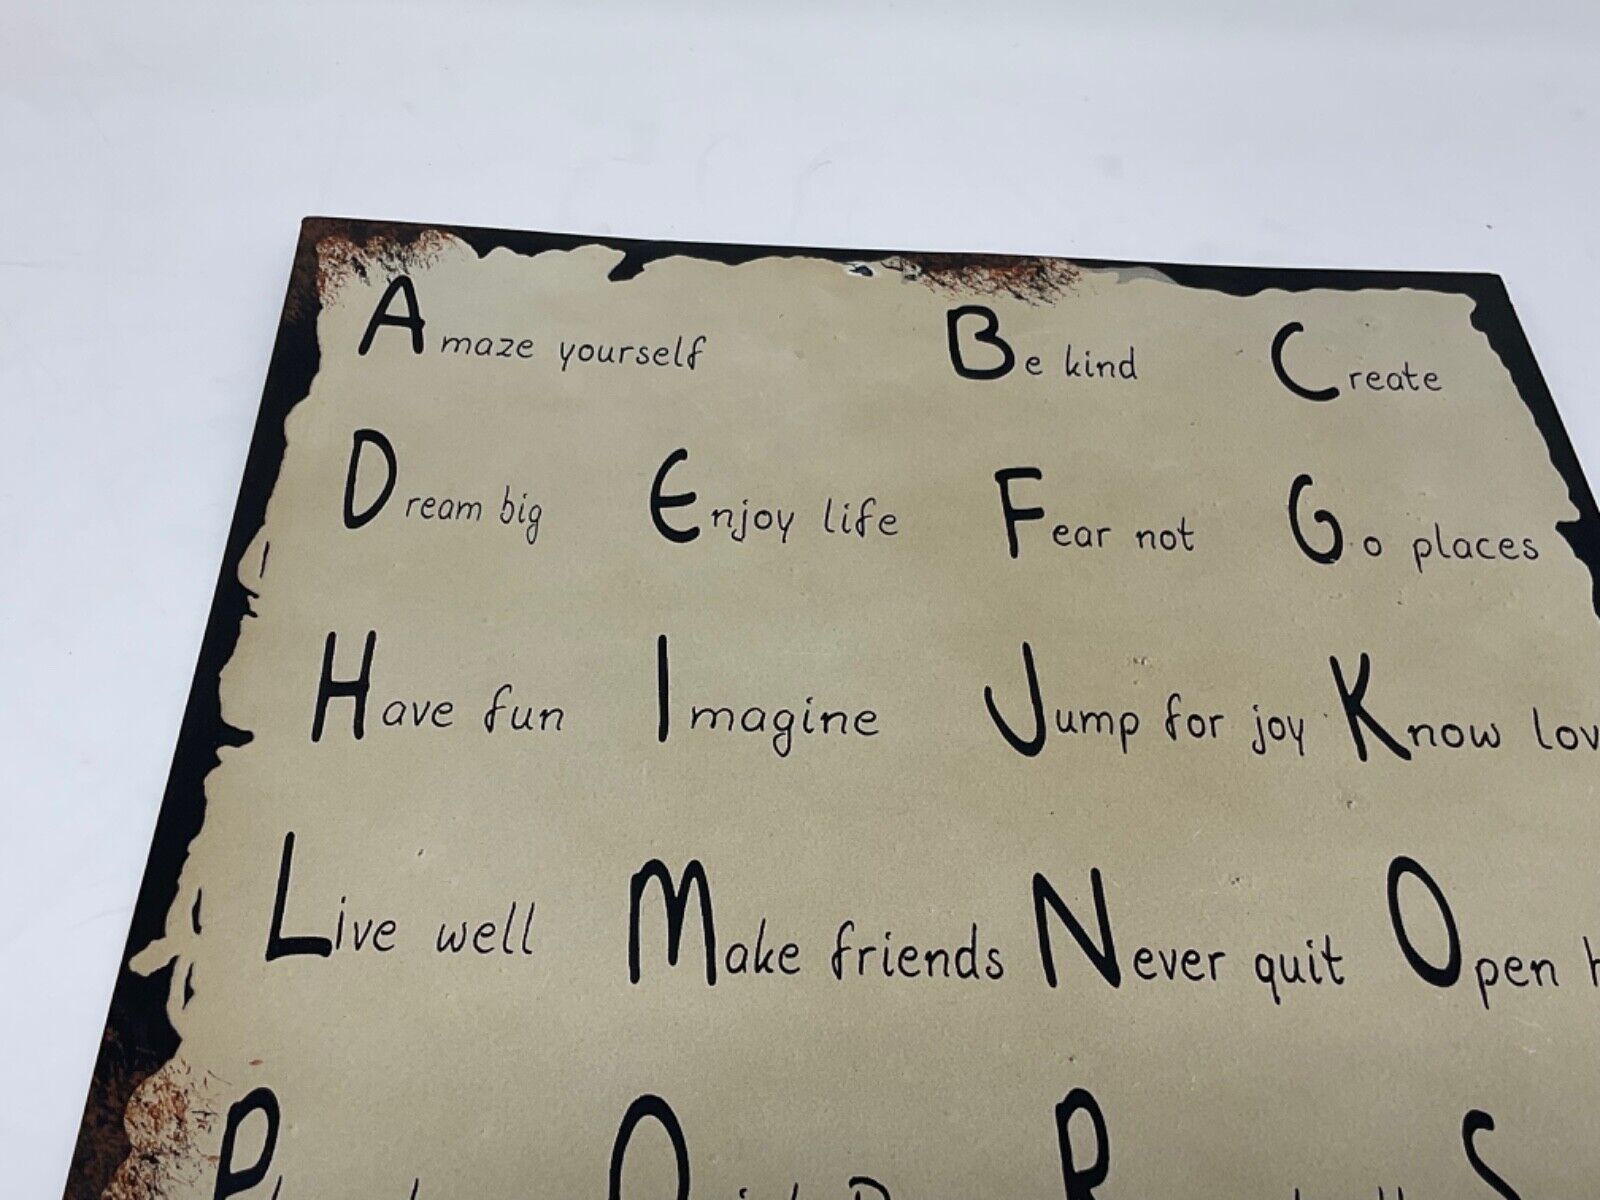 Amaze yourself Be kind Create
Dream big Enjoy life Fear not Go places
Have fun Imagine Jump for joy Know
Live well Make friends Never quit Open